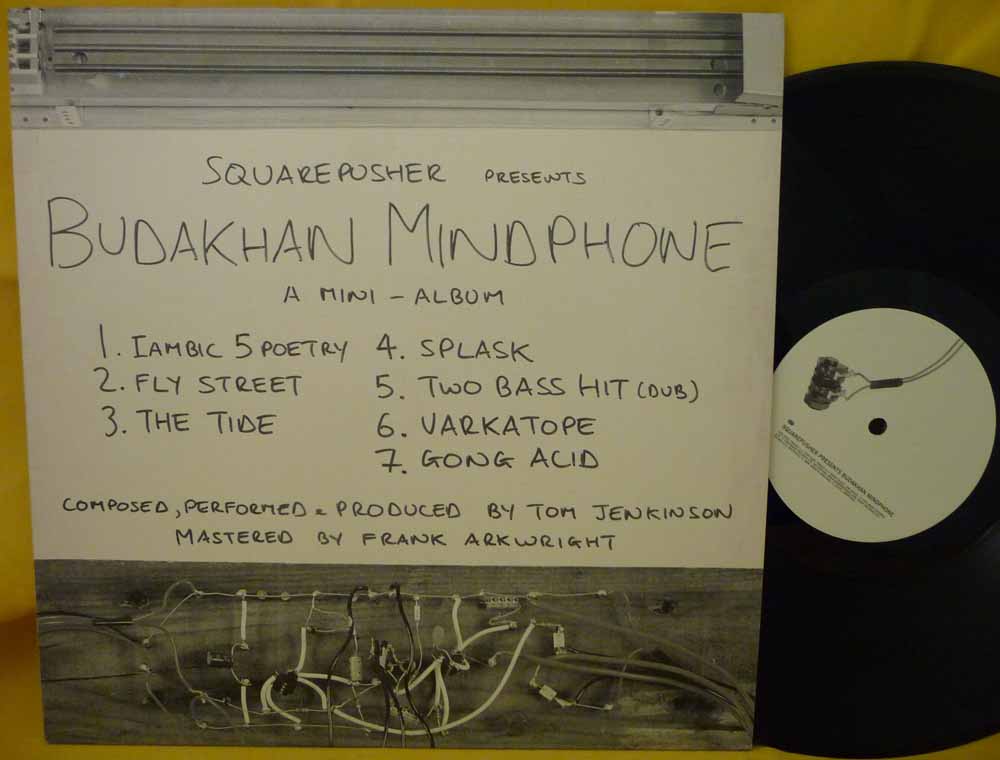 SQUAREPUSHER PRESENTS
BUDAKHAN MINDPHONE
A MINI - ALBUM
1. IAMBIC 5 POETRY
2. FLY STREET
3. THE TIDE
4. SPLASK
5. TWO BASS HIT (DUB)
6. VARKATOPE
7. GONG ACID
COMPOSED, PERFORMED & PRODUCED BY TOM JENKINSON
MASTERED BY FRANK ARKWRIGHT
SQUAREPUSHER PRESENTS BUDAKHAN MINDPHONE